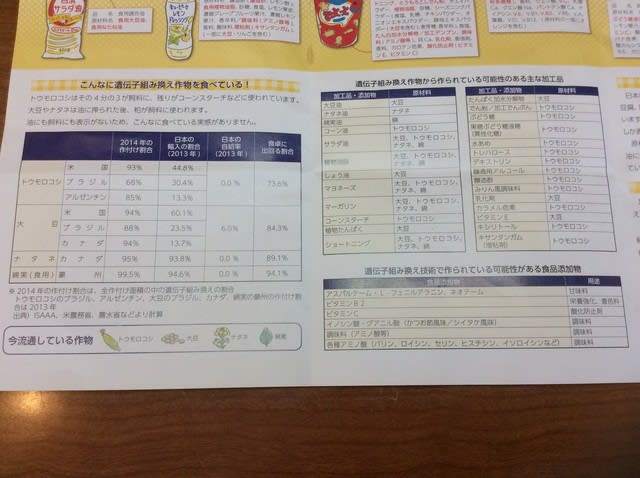 日清
サラダ油
品 名 食用調合油
原材料名 食用大豆油、
食用なたね油
キユーピー
レモン
こんなに遺伝子組み換え作物を食べている！
トウモロコシはその４分の３が飼料に、残りがコーンスターチなどに使われています。
大豆やナタネは油に搾られた後、粕が飼料に使われます。
油にも飼料にも表示がないため、こんなに食べている実感がありません。
2014年の作付け割合 日本の輸入の割合（2013年） 日本の自給率（2013年） 食卓に出回る割合
トウモロコシ 米国 93% 44.8% 0.0% 73.6%
ブラジル 68% 30.4%
アルゼンチン 85% 13.3%
大豆 米国 94% 60.1% 6.0% 84.3%
ブラジル 88% 23.5%
カナダ 94% 13.7%
ナタネ カナダ 95% 93.8% 0.0% 89.1%
綿実（食用） 豪州 99.5% 94.6% 0.0% 94.1%
※2014年の作付け割合は、全作付け面積の中の遺伝子組み換えの割合
トウモロコシのブラジル、アルゼンチン、大豆のブラジル、カナダ、綿実の豪州の作付け割
合は2013年
出典）ISAAA、米農務省、農水省などより計算
今流通している作物 トウモロコシ 大豆 ナタネ 綿実
遺伝子組み換え作物から作られている可能性のある主な加工品
加工品・添加物 原材料
大豆油 大豆
ナタネ油 ナタネ
綿実油 綿
コーン油 トウモロコシ
サラダ油 トウモロコシ、大豆、ナタネ、綿
植物油脂
しょうゆ 大豆
マヨネーズ トウモロコシ、大豆、ナタネ、綿
マーガリン 大豆、トウモロコシ、ナタネ、綿
コーンスターチ トウモロコシ
植物たんぱく 大豆
ショートニング 大豆、トウモロコシ、ナタネ、綿
加工品・添加物 原材料
たんぱく加水分解物 大豆
でん粉／加工でんぷん トウモロコシ
ぶどう糖 トウモロコシ
果糖ブドウ糖液糖（異性化糖） トウモロコシ
水あめ トウモロコシ
トレハロース トウモロコシ
デキストリン トウモロコシ
醸造用アルコール トウモロコシ
醸造酢 トウモロコシ
みりん風調味料 トウモロコシ
乳化剤 大豆
カラメル色素 トウモロコシ
ビタミンE 大豆
キシリトール トウモロコシ
キサンタンガム（増粘剤） トウモロコシ
遺伝子組み換え技術で作られている可能性がある食品添加物
食品添加物 用途
アスパルテーム・L-フェニルアラニン、ネオテーム 甘味料
ビタミンB2 栄養強化、着色料
ビタミンC 酸化防止剤
イノシン酸・グアニル酸（かつお節風味／シイタケ風味） 調味料
調味料（アミノ酸等） 調味料
各種アミノ酸（バリン、ロイシン、セリン、ヒスチシン、イソロイシンなど） 調味料